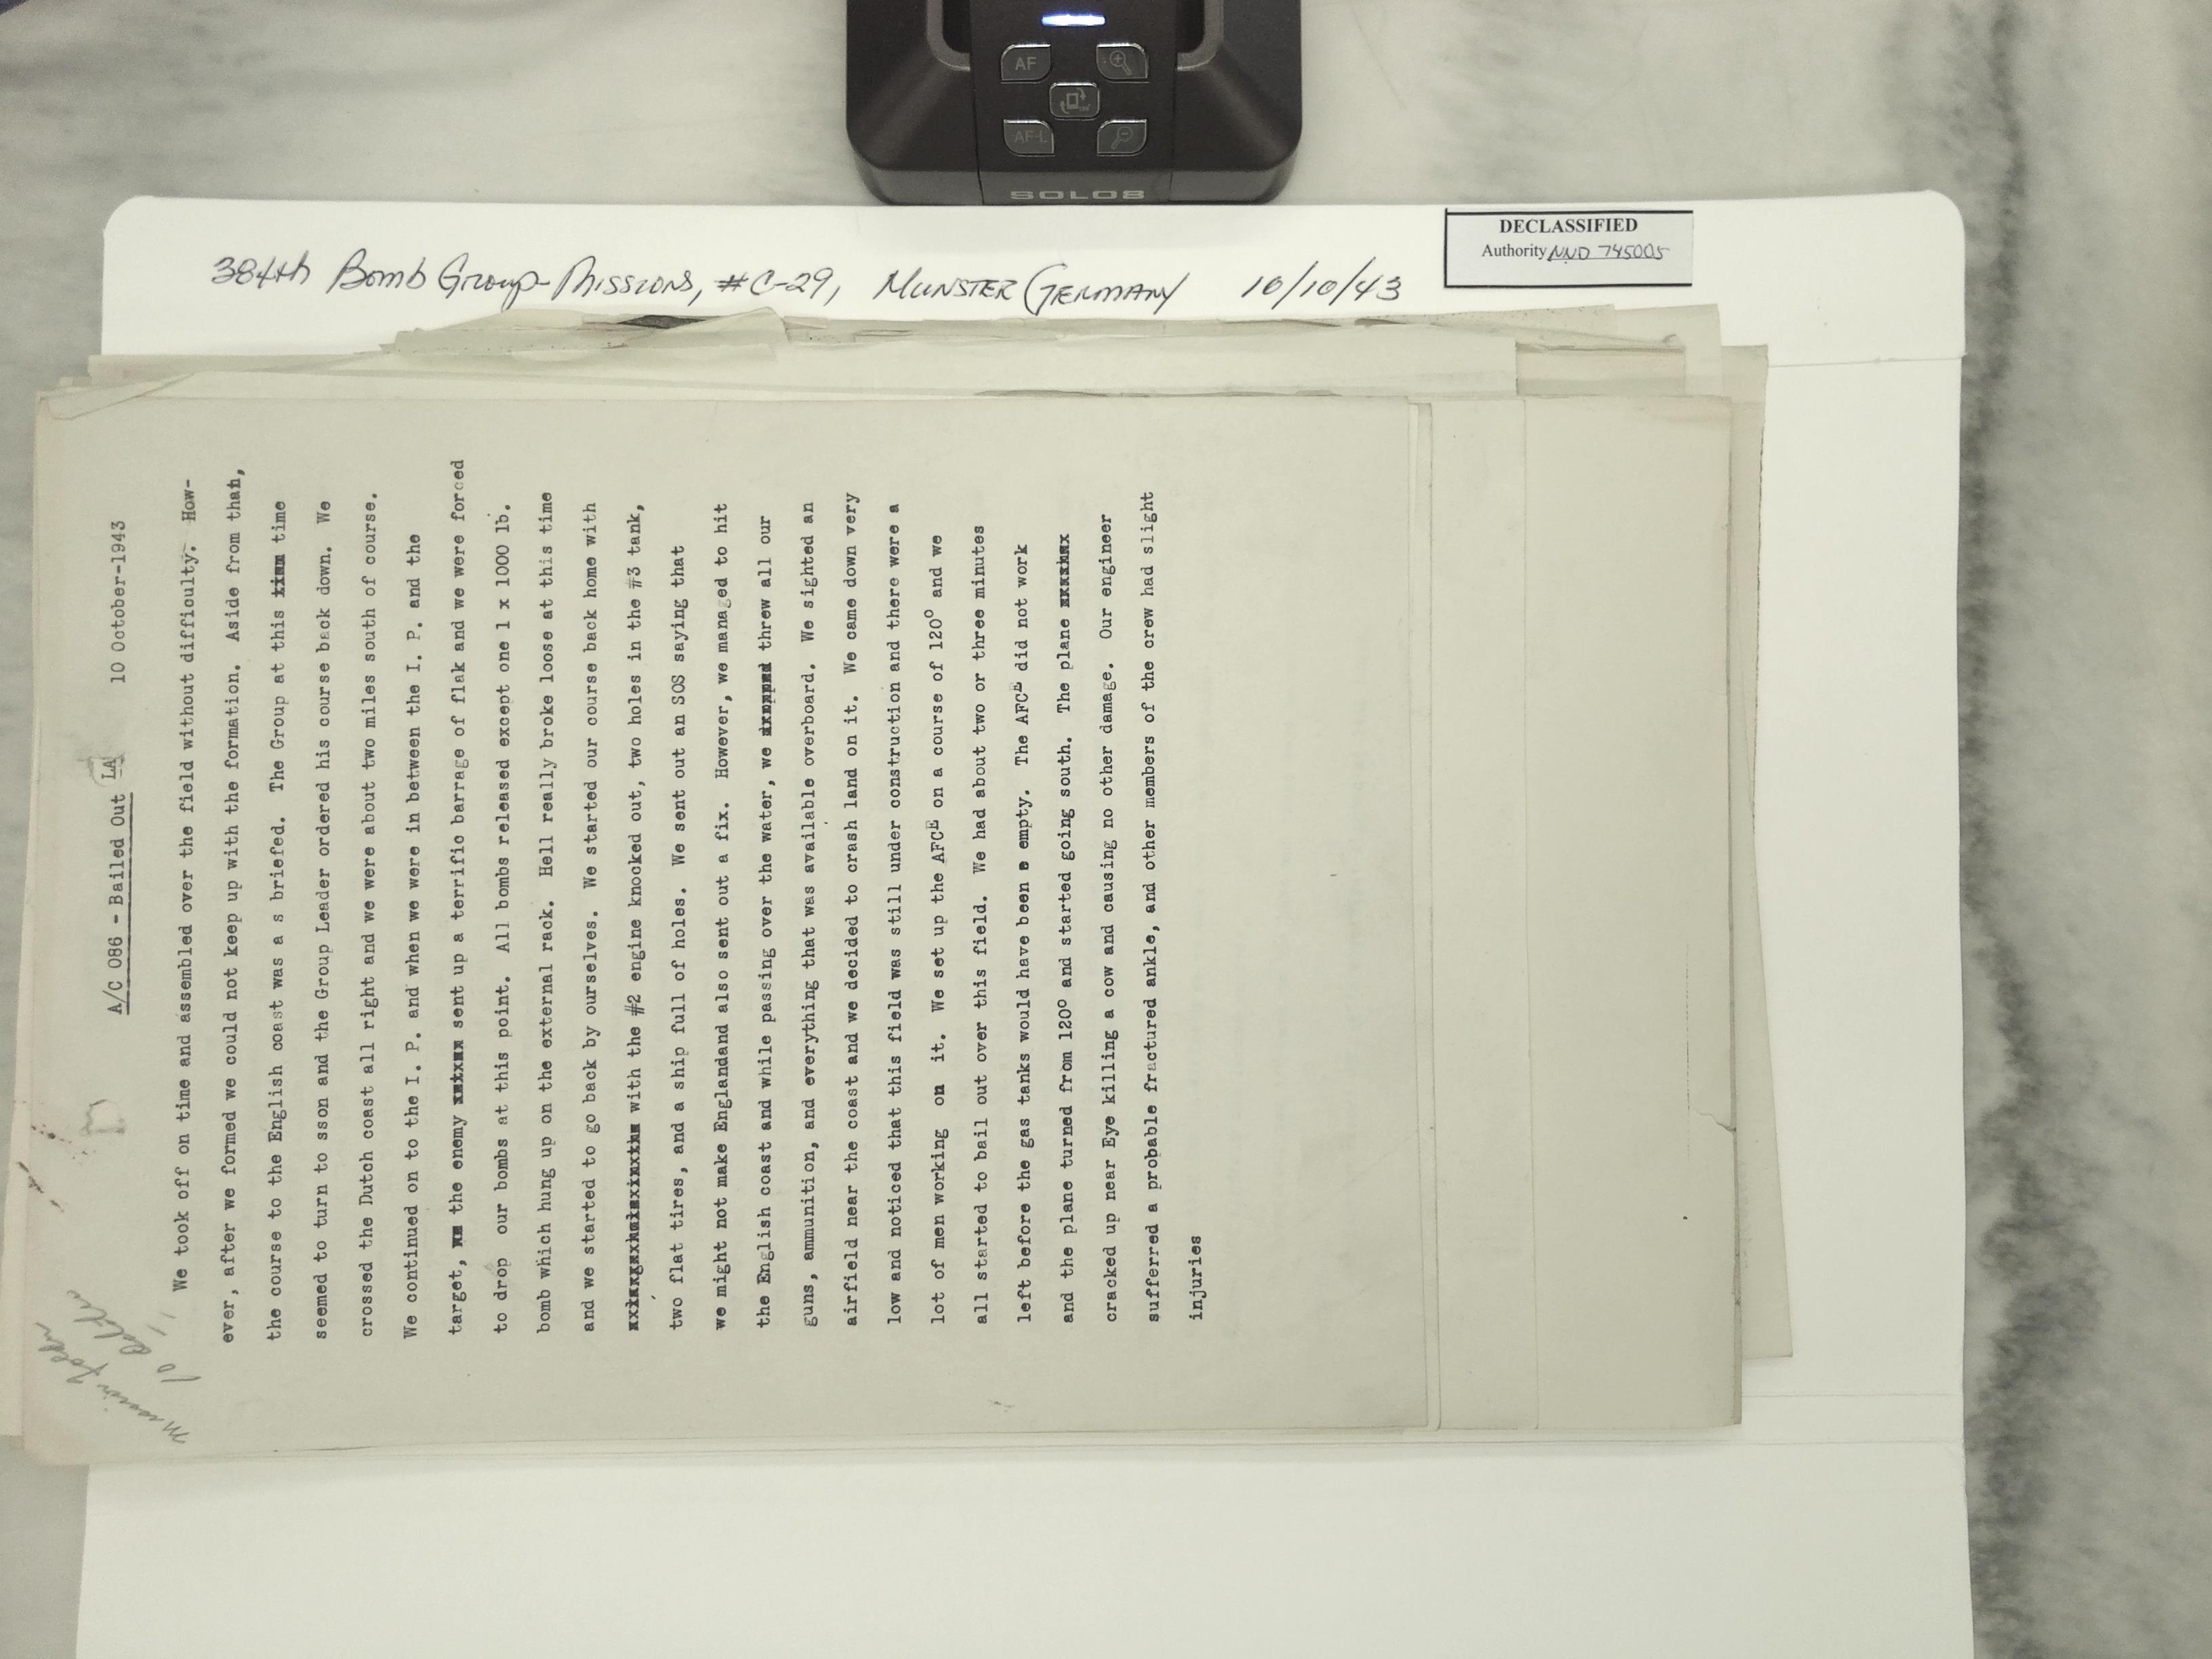 AF
AF-L
SOLO8
384th Bomb Group-Missions, #C-29, Munster Germany 10/10/43
DECLASSIFIED
Authority NND 745005
Mission folder
10 October-1943
A/C 086 - Bailed Out LA
We took off on time and assembled over the field without difficulty. How-
ever, after we formed we could not keep up with the formation. Aside from than,
the course to the English coast was a s briefed. The Group at this time
seemed to turn to sson and the Group Leader ordered his course back down. We
crossed the Dutch coast all right and we were about two miles south of course.
We continued on to the I. P. and when we were in between the I. P. and the
target, the enemy sent up a terrific barrage of flak and we were forced
to drop our bombs at this point. All bombs released except one 1 x 1000 lb.
bomb which hung up on the external rack. Hell really broke loose at this time
and we started to go back by ourselves. We started our course back home with
with the #2 engine knocked out, two holes in the #3 tank,
two flat tires, and a ship full of holes. We sent out an SOS saying that
we might not make Englandand also sent out a fix. However, we managed to hit
the English coast and while passing over the water, we threw all our
guns, ammunition, and everything that was available overboard. We sighted an
airfield near the coast and we decided to crash land on it. We came down very
low and noticed that this field was still under construction and there were a
lot of men working on it. We set up the AFCE on a course of 120° and we
all started to bail out over this field. We had about two or three minutes
left before the gas tanks would have been e empty. The AFCE did not work
and the plane turned from 120° and started going south. The plane
cracked up near Eye killing a cow and causing no other damage. Our engineer
sufferred a probable fractured ankle, and other members of the crew had slight
injuries